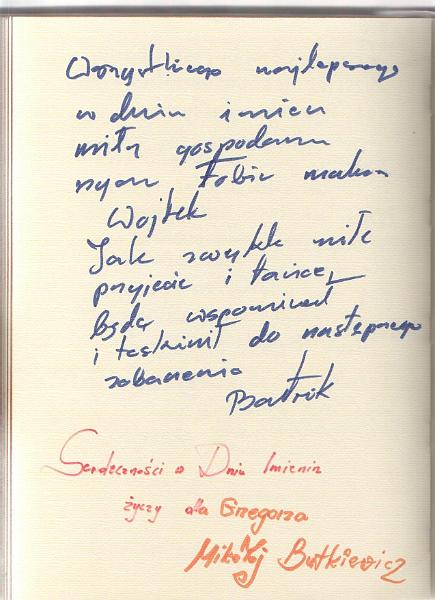 Wszystkiego najlepszego
w dniu imien
miły gospodarzu
życzy Tobie
Wojtek
Jak zwykle miłe
przyjęcie i tańce,
będę wspominał
i tęsknił do następnego
zobaczenia
Bartek
Serdeczności w Dniu Imienin
życzy dla Grzegorza
Mikołaj Butkiewicz